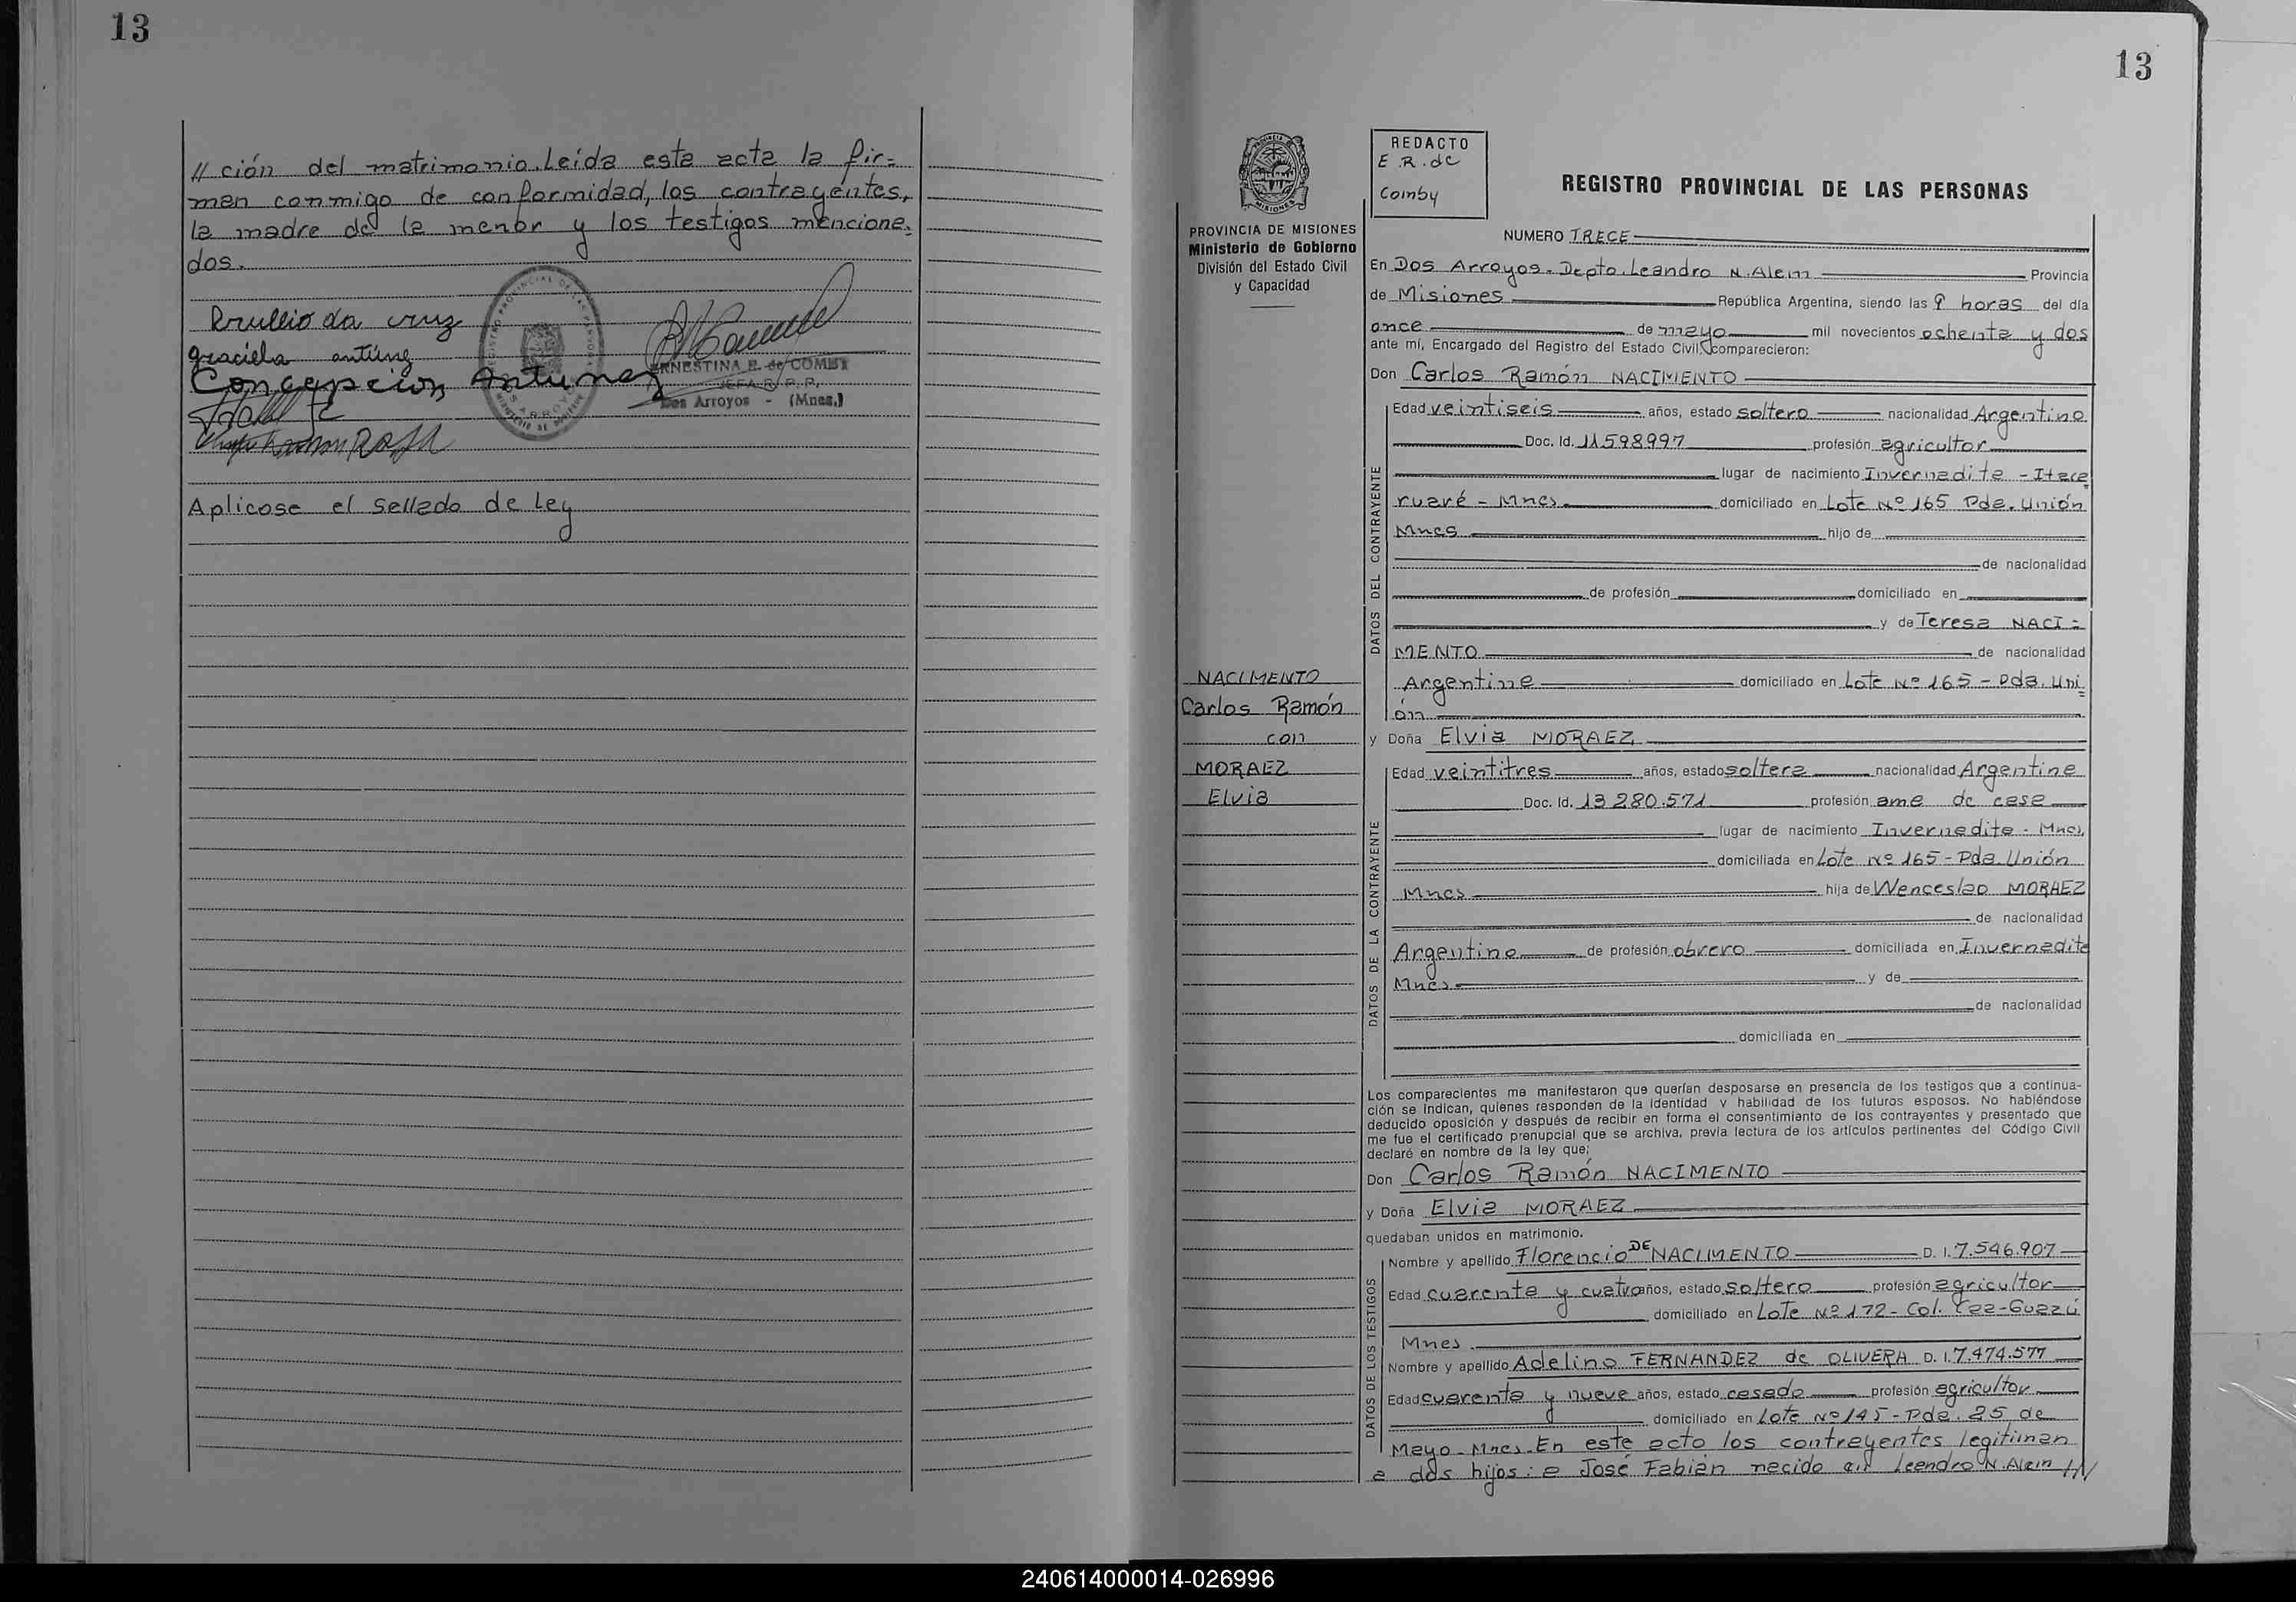 13
// ción del matrimonio. Leída esta acta la fir=
man conmigo de conformidad, los contrayentes,
la madre de la menor y los testigos menciona=
dos.
da cruz
graciela
Concepcion Antunez
ERNESTINA R. de COMBY
JEFA R. P. P.
Dos Arroyos - (Mnes.)
Ramon
Aplicose el sellado de Ley
13
PROVINCIA DE MISIONES
Ministerio de Gobierno
División del Estado Civil
y Capacidad
REDACTO
E.R. de
Comby
REGISTRO PROVINCIAL DE LAS PERSONAS
NUMERO TRECE
En Dos Arroyos. Depto. Leandro N. Alem Provincia
de Misiones República Argentina, siendo las 9 horas del día
once de mayo mil novecientos ochenta y dos
ante mí, Encargado del Registro del Estado Civil, comparecieron:
Don Carlos Ramón NACIMIENTO
DATOS DEL CONTRAYENTE
Edad veintiseis años, estado soltero nacionalidad Argentino
Doc. Id. 11598997 profesión agricultor
lugar de nacimiento Invernadita - Itaca
ruaré - Mnes. domiciliado en Lote Nº 165 Pda. Unión
Mnes hijo de
de nacionalidad
de profesión domiciliado en
y de Teresa NACI=
MENTO de nacionalidad
Argentina domiciliado en Lote Nº 165 - Pda. Uni=
ón
NACIMENTO
Carlos Ramón
con
MORAEZ
Elvia
y Doña Elvia MORAEZ
DATOS DE LA CONTRAYENTE
Edad veintitres años, estado soltera nacionalidad Argentina
Doc. Id. 13280.571 profesión ama de casa
lugar de nacimiento Invernadita - Mnes.
domiciliada en Lote Nº 165 - Pda Unión
Mnes hija de Wenceslao MORAEZ
de nacionalidad
Argentino de profesión obrero domiciliada en Invernadita
Mnes y de
de nacionalidad
domiciliada en
Los comparecientes me manifestaron que querían desposarse en presencia de los testigos que a continua-
ción se indican, quienes responden de la identidad y habilidad de los futuros esposos. No habiéndose
deducido oposición y después de recibir en forma el consentimiento de los contrayentes y presentado que
me fue el certificado prenupcial que se archiva, previa lectura de los artículos pertinentes del Código Civil
declaré en nombre de la ley que;
Don Carlos Ramón NACIMENTO
y Doña Elvia MORAEZ
quedaban unidos en matrimonio.
DATOS DE LOS TESTIGOS
Nombre y apellido Florencio DE NACIMENTO D. I. 7.546.907
Edad cuarenta y cuatro años, estado soltero profesión agricultor
domiciliado en Lote Nº 172 - Col. Caa-Guazú
Mnes
Nombre y apellido Adelino FERNANDEZ de OLIVERA D. I. 7.474.577
Edad cuarenta y nueve años, estado casado profesión agricultor
domiciliado en Lote Nº 145 - Pda. 25 de
Mayo - Mnes. En este acto los contrayentes legitiman
a dos hijos: a José Fabián nacido en Leandro N. Alem //
240614000014-026996